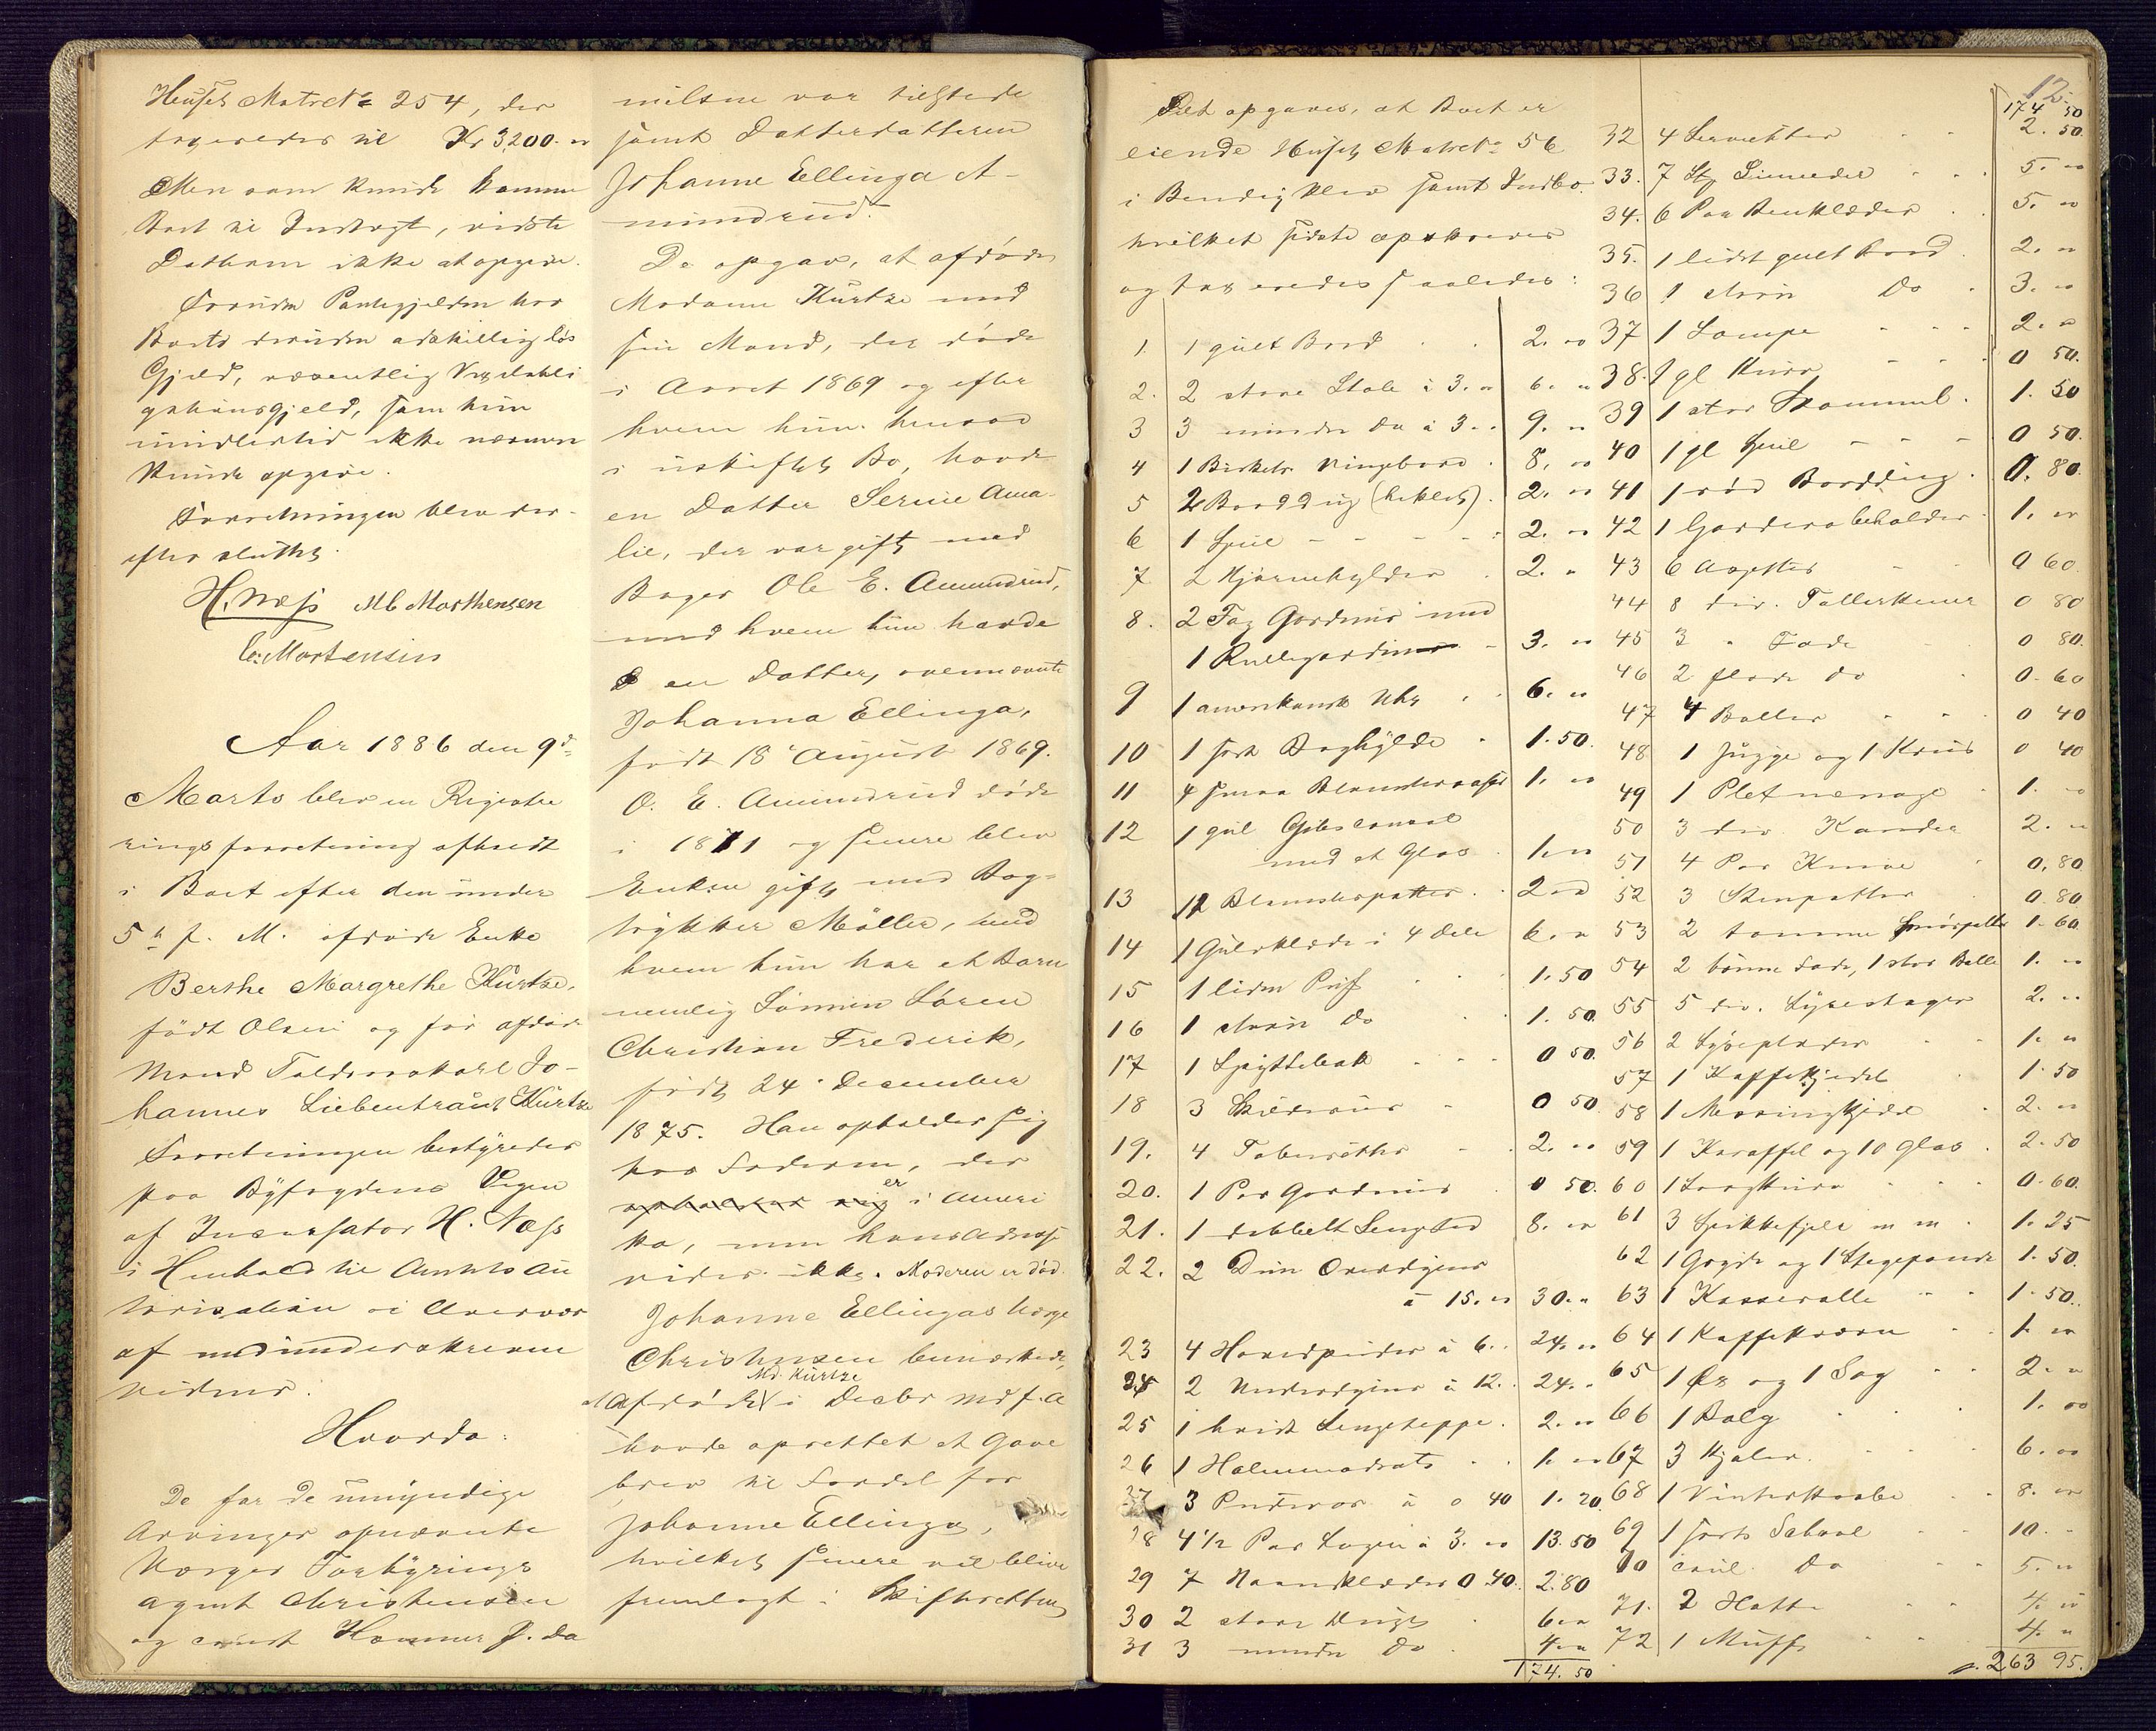 Huset Matr. No 254, der
taxeredes til Kr 3200. "
Men som kunde komme
Boet til Indtægt, vidste
Datteren ikke at opgive.
Foruden Pantegjælden har
Boets desuden adskillig løs
Gjæld, væsentlig
gjæld, som hun
imidlertid ikke nærmere
kunde opgive.
Forretningen blev der-
efter sluttet.
H. Næss M C Morthensen
C. Mortensen
Aar 1886 den 9d
Marts blev en Registre
ringsforretning afholdt
i Boet efter den under
5te f. M. afdøde Enke
Berthe Margrethe Kürtze,
født Olsen og før afdøde
Mand Toldmaskarl Jo-
hannes Liebentraut Kürtze
Forretningen bestyredes
paa Byfogdens Vegne
af Incassator H. Næss
i Henhold til Amtets Au
torisation i Overvær
af medunderskrevne
Vidner.
Hvorda:
De for de umyndige
Arvinger opnævnte
Værger Forhyrings
agent Christensen
og Hammer P. Da
nielsen var tilstede
samt Datterdatteren
Johanne Ellinga A-
mundrud.
De opgav, at afdøde
Madame Kürtze med
sin Mand, der døde
i Aaret 1869 og efter
hvem hun hensad
i uskiftet Bo, havde
en Datter Serine Ama-
lie, der var gift med
Bager Ole E. Amundrud,
med hvem hun havde
en Datter, ovennævnte
Johanna Ellinga,
født 18 August 1869.
O. E. Amundrud døde
i 1871 og senere blev
Enken gift med Bog-
trykker Møller, med
hvem hun har et Barn
nemlig Sønnen Søren
Christian Frederik,
født 24 December
1875. Han opholder sig
hos Faderen, der
opholder sig er i Ameri
ka, men hans Adresse
vides ikke. Moderen er død.
Johanne Ellingas Værge
Christensen bemærkede,
at Afdøde Md. Kürtze i Decbr Md f. A
havde oprettet et Gave
brev til Fordel for
Johanne Ellinga,
hvilket senere vil blive
fremlagt i Skifteretten
12
Det opgaves, at Boet er
eiende Huset Matr. No 56
i Bendixklev samt Indbo
hvilket sidste opskreves
og taxeredes saaledes:
1. 1 gult Bord 2. "
2. 2 store Stole à 3. " 6. "
3 3 mindre do à 3. " 9. "
4 1 Birkets Vingebord 8. "
5 2 Borddug (heklet) 2. "
6 1 Speil 2. "
7 2 Hjørnehylder 2. "
8. 2 Fag Gardiner med
1 Rullegardin 3. "
9 1 amerikansk Uhr 6. "
10 1 sort Boghylde 1. 50.
11 4 smaa Blomstervaser 1. "
12 1 gul
med et Glas 1. "
13 12 Blomsterpotter 2 "
14 1 Gulvklæde i 4 Dele 6. "
15 1 liden Puf 1. 50
16 1 do 1. 50.
17 1 Spyttebak 0 50.
18 3 Skilderier 0 50.
19. 4 Tabouretter 2. "
20. 1 Par Gardiner 0 50.
21. 1 dobbelt Sengsted 8. "
22. 2 Dun Overdyner
à 15. " 30. "
23 4 Hovedpuder à 6. " 24. "
24 2 Underdyner à 12. " 24. "
25 1 hvidt Sengeteppe 2. "
26 1 Halmmadrats 1. "
27 3 Pudevar à 0 40 1. 20.
28 4 1/2 Par Lagen à 3. " 13. 50
29 7 Haandklæder 0 40. 2. 80
30 2 store Duge 6. "
31 3 mindre do 4. "
174. 50
174 50
32 4 Servietter 2. 50.
33. 7 Stk 5. "
34. 6 Par Benklæder 5. "
35. 1 lidet gult Bord 2. "
36 1 Do 3. "
37 1 Lampe 2. "
38. 1 gl Kurv 0 50.
39 1 stor Skammel 1. 50
40 1 gl Speil 0 50.
41 1 rød Borddug 0. 80.
42 1 Garderobeholder 1. "
43 6 Asjetter 0 60.
44 8 div. Tallerkener 0 80
45 3 " Fade 0 80.
46 2 flade do 0. 60
47 4 Boller 0 40
48 1 Mugge og 1 Krus 0 40
49 1 Pletmenage 1. "
50 3 div Kander 2. "
51 4 Par Knive 0. 80
52 3 Stenpotter 0. 80
53 2 tomme Smørpotter 1. 60.
54 2 tønne Fade, 1 stor Balle 1. "
55 5 div. Lysestager 2. "
56 2 Lyseplader 1. "
57 1 Kaffekjedel 1. 50
58 1 Messingkjedel 2. "
59 1 Karaffel og 10 Glas 2. 50
60 1 Langkurv 0. 60.
61 3 Spikkefjele m m 1. 25
62 1 Gryde og 1 Stegepande 1. 50.
63 1 Kasserolle 1. 50.
64 1 Kaffekværn 1. "
65 1 Øx og 1 Sag 2. "
66 1 Balg 1. "
67 3 Kjoler 6. "
68 1 Vinterkaabe 8. "
69 1 sort Schavl 10. "
70 coul. do 5. "
71. 2 Hatte 4. "
72 1 Muffe 4. "
263 95.